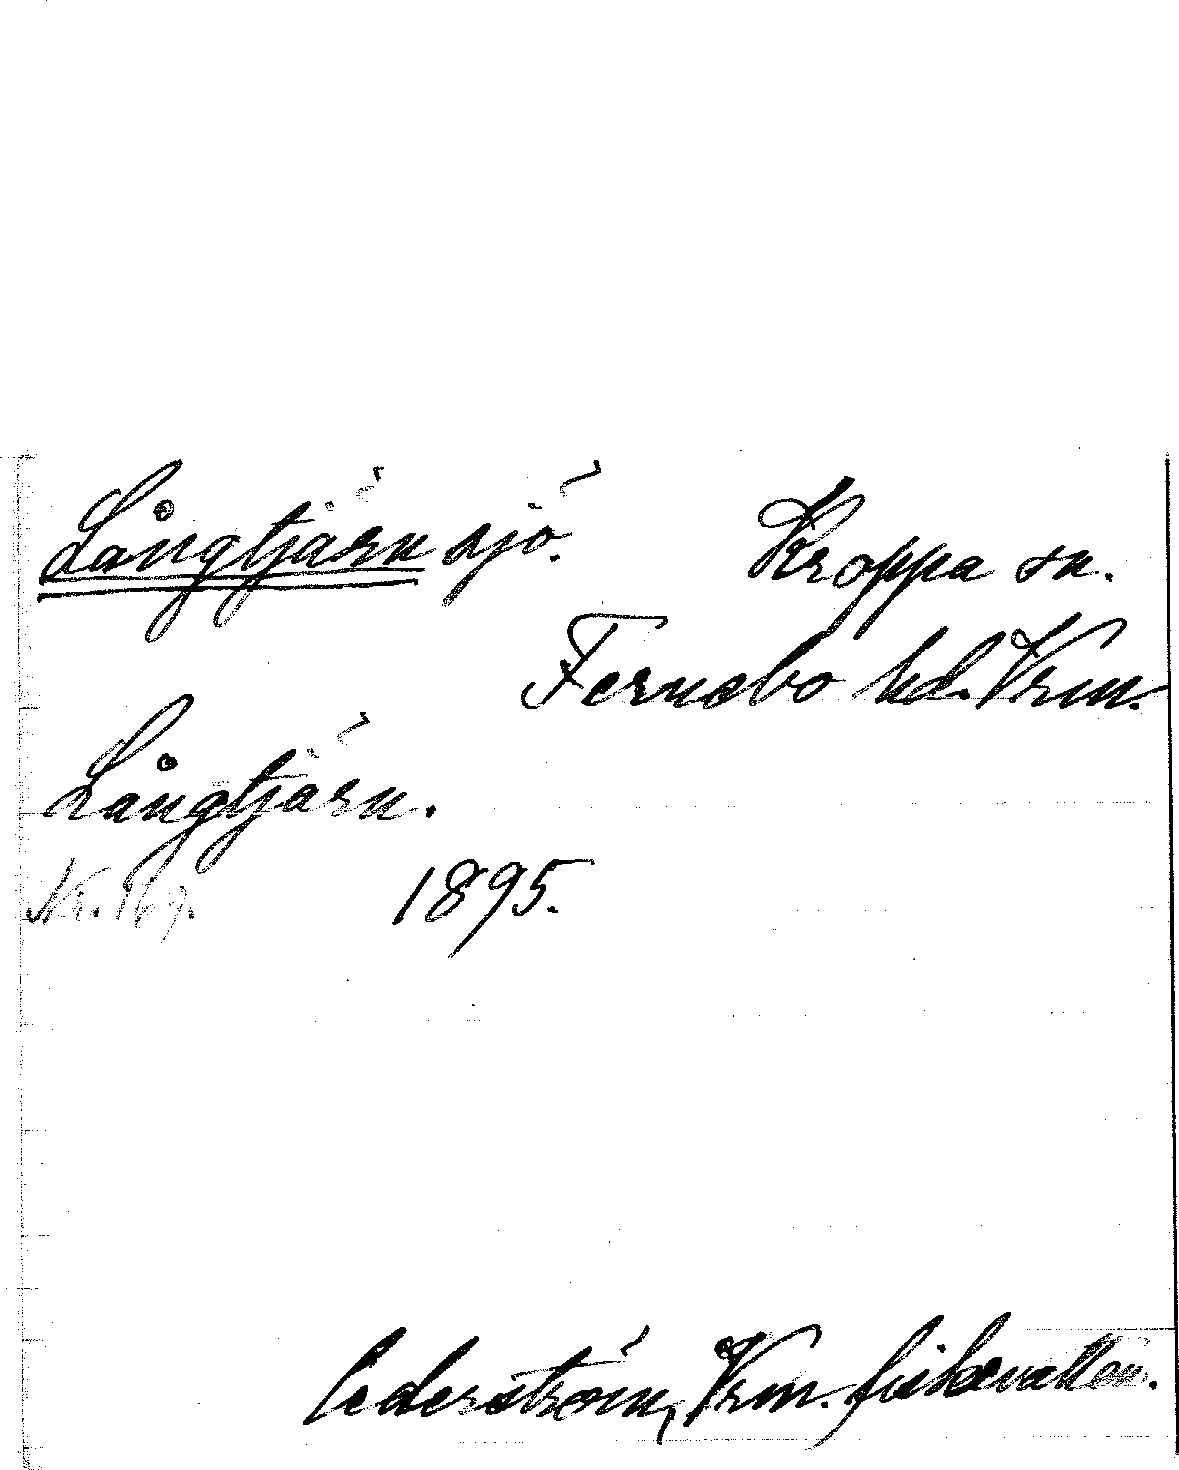 Långtjärn sjö. Kroppa sn.
Fernebo hd. Vrm.
Långtjärn.
Nr. 167. 1895.
Cederström, Vrm. fiskevatten.